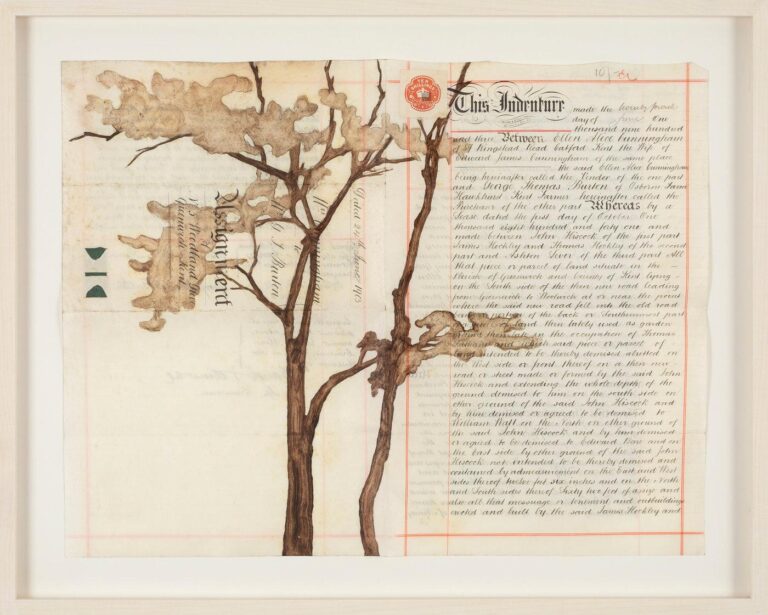 TEN
This Indenture made the twenty fourth
day of June One
thousand nine hundred
and three Between Ellen Alice Cunningham
of Kingstead Road Catford Kent the Wife of
Edward James Cunningham of the same place
the said Ellen Alice Cunningham
being hereinafter called the Vendor of the one part
and George Thomas Burton of Osborn Farm
Hawkhurst Kent Farmer hereinafter called the
Purchaser of the other part Whereas by a
Lease dated the first day of October One
thousand eight hundred and forty one and
made between John Hiscock of the first part
James Hockley and Thomas Hockley of the second
part and Ashton of the third part All
that piece or parcel of land situate in the
Parish of Greenwich and County of Kent lying
on the South side of the then new road leading
from Greenwich to Woolwich at or near the point
where the said new road fell into the old road
part of the back or Southernmost part
of land then lately used as garden
ground then late in the occupation of Thomas
and which said piece or parcel of
intended to be thereby demised abutted on
the West side or front thereof on a then new
road or street made or formed by the said John
Hiscock and extending the whole depth of the
ground demised to him on the south side on
other ground of the said John Hiscock and
by him demised or agreed to be demised to
William on the North on other ground of
the said John Hiscock and by him demised
or agreed to be demised to Edward and on
the East side by other ground of the said John
Hiscock not intended to be thereby demised and
contained by admeasurement on the East and West
sides thereof twelve feet six inches and on the North
and South sides thereof Sixty two feet and
also all that messuage or tenement and outbuildings
erected and built by the said James Hockley and
Dated 24th June 1903
ningham
G. T. Burton
Assignment
No 5 Woodland Place
Greenwich Kent